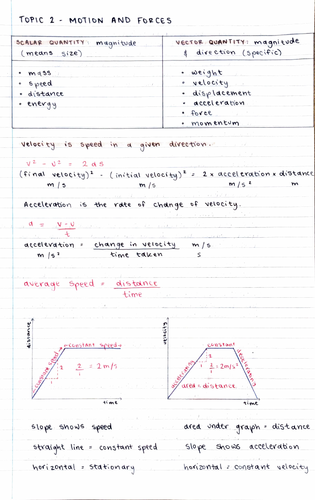 TOPIC 2 - MOTION AND FORCES
SCALAR QUANTITY: magnitude
(means size)
• mass
• speed
• distance
• energy
VECTOR QUANTITY: magnitude
& direction (specific)
• weight
• velocity
• displacement
• acceleration
• force
• momentum
velocity is speed in a given direction.
v² - u² = 2as
(final velocity)² - (initial velocity)² = 2 x acceleration x distance
m/s m/s m/s² m
Acceleration is the rate of change of velocity.
a = v-u
t
acceleration = change in velocity m/s
m/s² time taken s
average speed = distance
time
distance
constant speed
constant speed
2
1
2/1 = 2m/s
time
velocity
constant
accelerating
decelerating
2
1
2/1 = 2m/s²
area = distance
time
slope shows speed
straight line = constant speed
horizontal = stationary
area under graph = distance
slope shows acceleration
horizontal = constant velocity